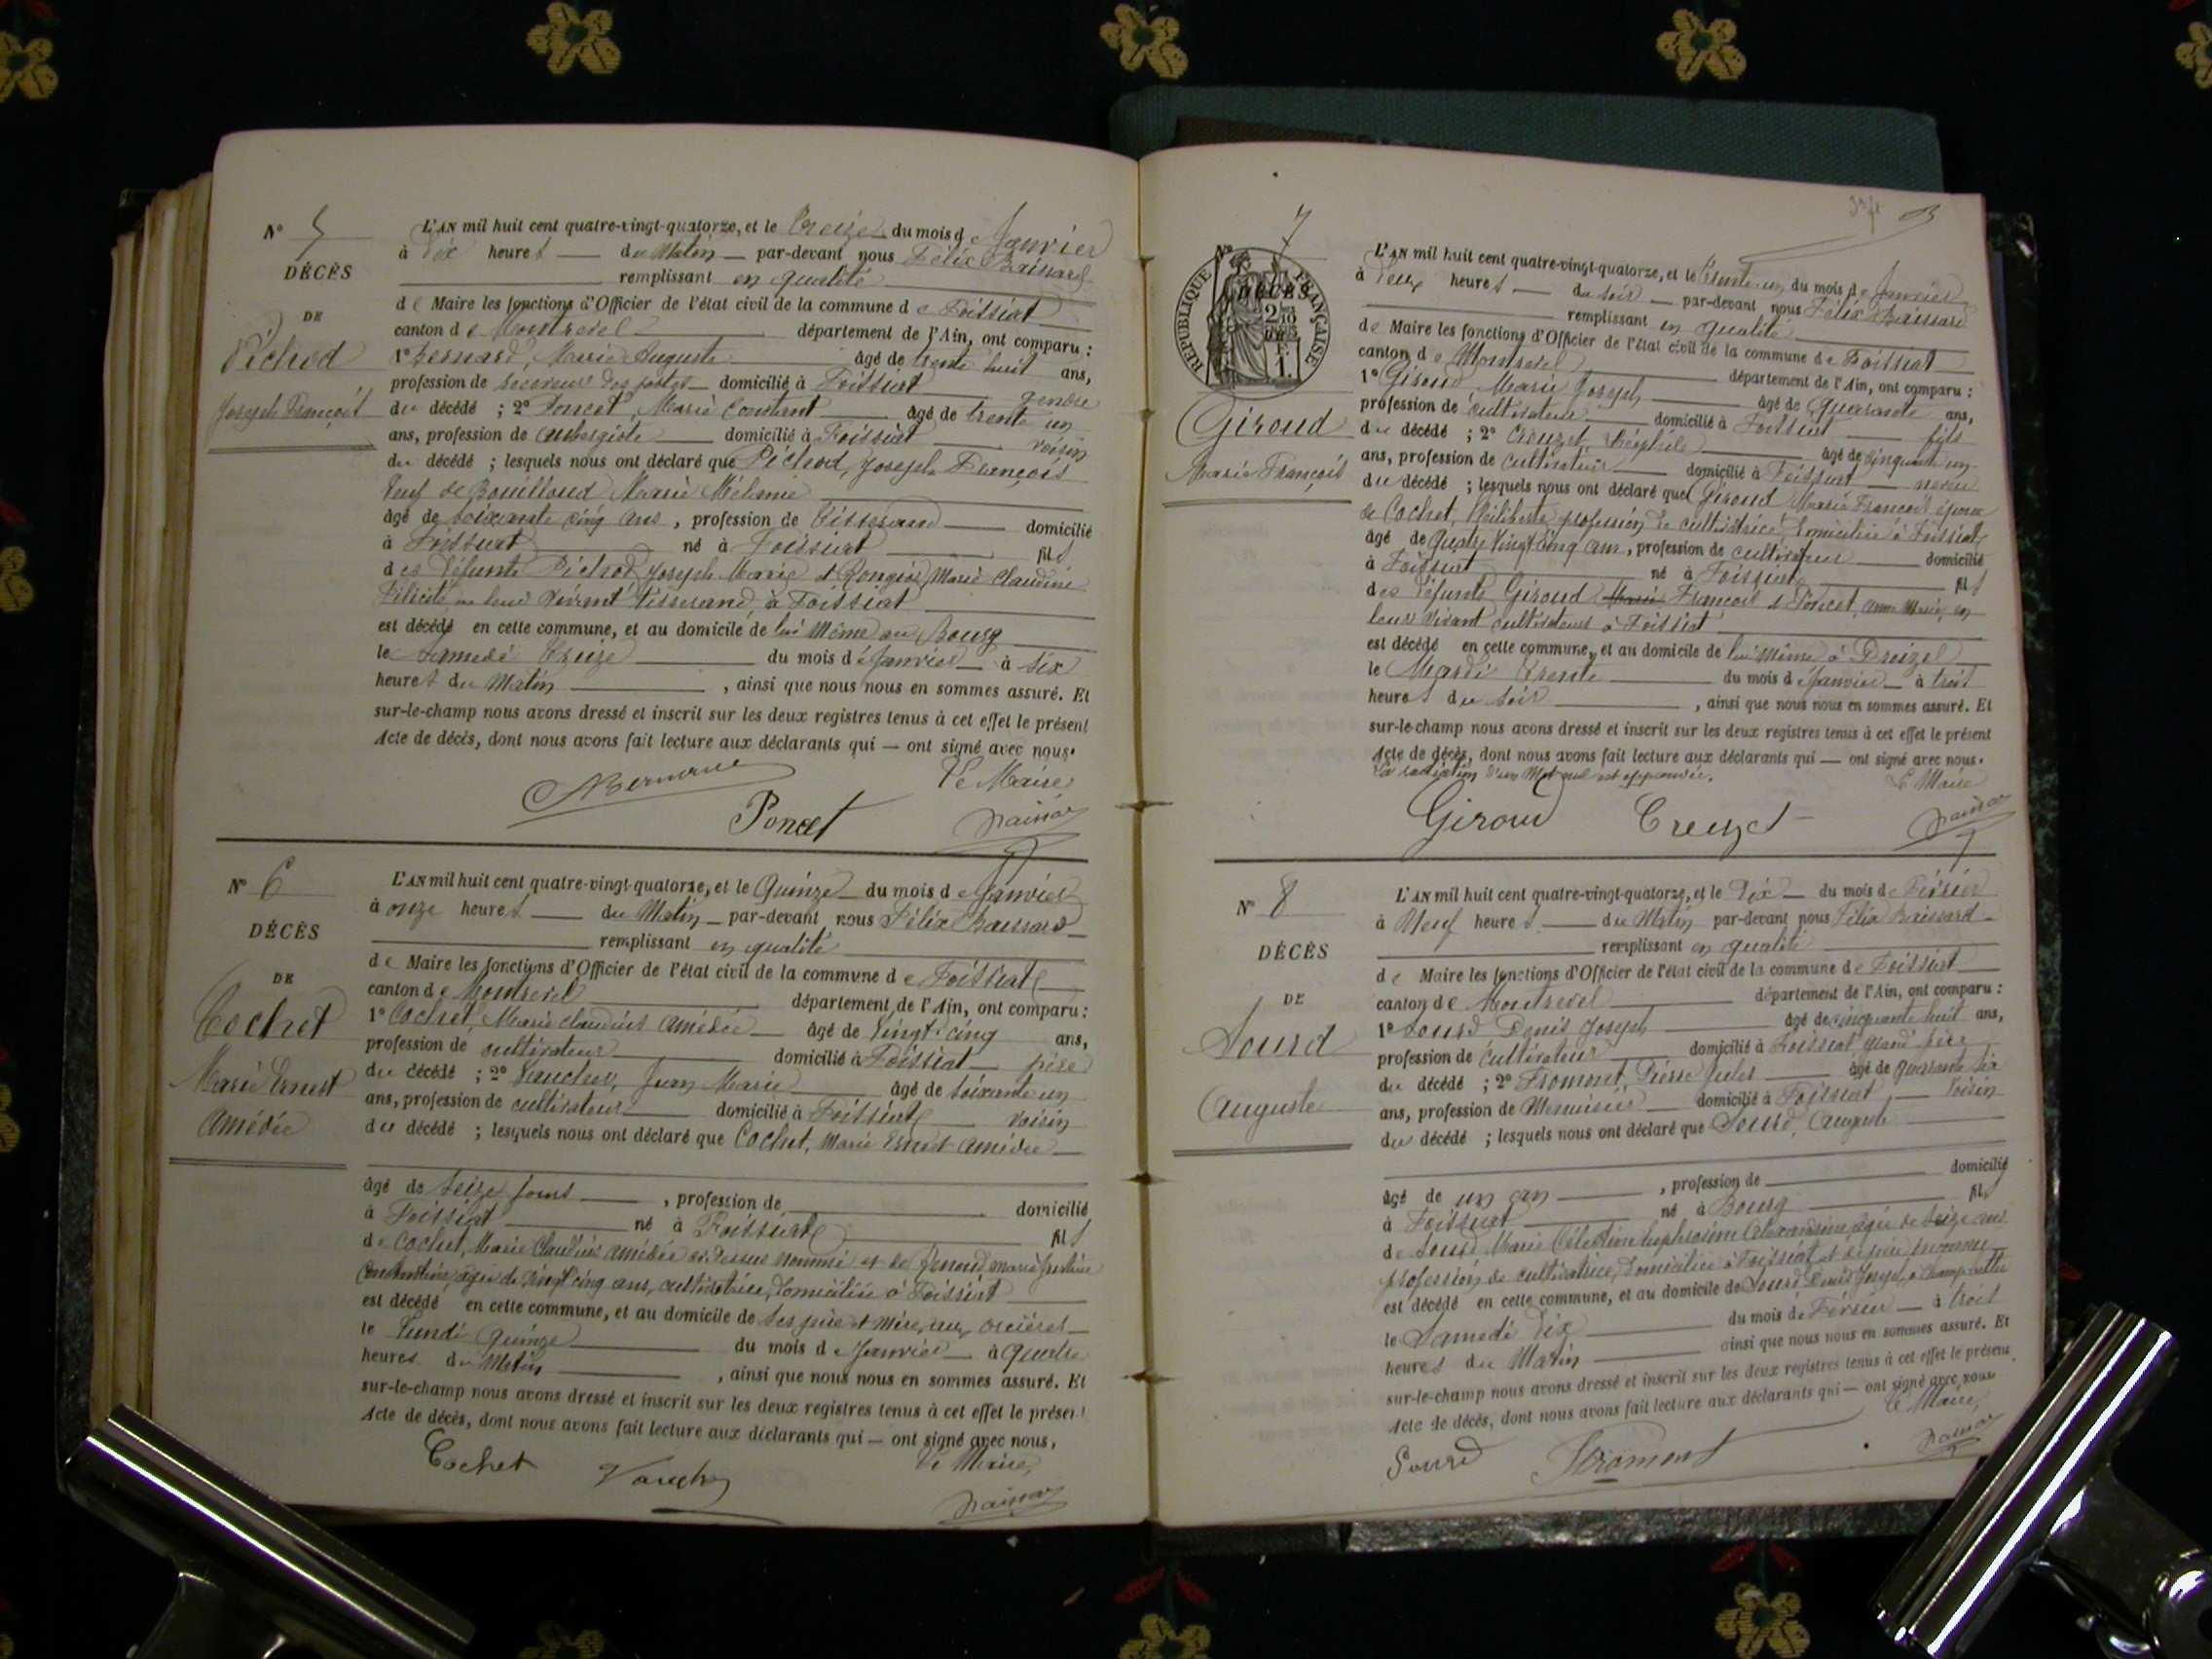 N° 5
DÉCÈS
DE
Pichod
Joseph François
L'AN mil huit cent quatre-vingt-quatorze, et le Treize du mois de Janvier
à Dix heures du Matin par-devant nous Félix Baissard
remplissant en qualité
de Maire les fonctions d'Officier de l'état civil de la commune de Foissiat
canton de Montrevel département de l'Ain, ont comparu :
1° Bernard, Marie Auguste âgé de trente huit ans,
profession de Receveur des postes domicilié à Foissiat gendre
du décédé ; 2° Poncet, Marie Constant âgé de trente un
ans, profession de aubergiste domicilié à Foissiat voisin
du décédé ; lesquels nous ont déclaré que Pichod, Joseph François
veuf de Bouilloud Marie Mélanie
âgé de soixante cinq ans, profession de Tisserand domicilié
à Foissiat né à Foissiat fils
des défunts Pichod Joseph Marie et Rongier Marie Claudine
Félicité en leur vivant Tisserand à Foissiat
est décédé en cette commune, et au domicile de lui même au Bourg
le Samedi Treize du mois de Janvier à six
heures du Matin , ainsi que nous nous en sommes assuré. Et
sur-le-champ nous avons dressé et inscrit sur les deux registres tenus à cet effet le présent
Acte de décès, dont nous avons fait lecture aux déclarants qui — ont signé avec nous.
Le Maire
Poncet
N° 6
DÉCÈS
DE
Cochet
Marie Ernest
Amédée
L'AN mil huit cent quatre-vingt-quatorze, et le Quinze du mois de Janvier
à onze heures du Matin par-devant nous Félix Baissard
remplissant en qualité
de Maire les fonctions d'Officier de l'état civil de la commune de Foissiat
canton de Montrevel département de l'Ain, ont comparu :
1° Cochet, Marie Claudius Amédée âgé de vingt cinq ans,
profession de cultivateur domicilié à Foissiat père
du décédé ; 2° Vaucher, Jean Marie âgé de soixante un
ans, profession de cultivateur domicilié à Foissiat voisin
du décédé ; lesquels nous ont déclaré que Cochet, Marie Ernest Amédée
âgé de seize jours , profession de domicilié
à Foissiat né à Foissiat fils
de Cochet, Marie Claudius Amédée ci-dessus nommé et de marie
âgée de vingt cinq ans, cultivatrice, domiciliée à Foissiat
est décédé en cette commune, et au domicile de ses père et mère, aux
le Lundi Quinze du mois de Janvier à quatre
heures du Matin , ainsi que nous nous en sommes assuré. Et
sur-le-champ nous avons dressé et inscrit sur les deux registres tenus à cet effet le présent
Acte de décès, dont nous avons fait lecture aux déclarants qui — ont signé avec nous,
Le Maire,
Cochet
N° 7
RÉPUBLIQUE FRANÇAISE
DÉCÈS
Giroud
Marie François
L'AN mil huit cent quatre-vingt-quatorze, et le trente un du mois de Janvier
à Deux heures du soir par-devant nous Félix Baissard
remplissant en qualité
de Maire les fonctions d'Officier de l'état civil de la commune de Foissiat
canton de Montrevel département de l'Ain, ont comparu :
1° Giroud Marie Joseph âgé de quarante ans,
profession de cultivateur domicilié à Foissiat fils
du décédé ; 2° Creuzet, Théophile âgé de cinquante un
ans, profession de cultivateur domicilié à Foissiat neveu
du décédé ; lesquels nous ont déclaré que Giroud Marie François époux
de Cochet, Philiberte profession de cultivatrice domiciliée à Foissiat
âgé de Quatre vingt cinq ans, profession de cultivateur domicilié
à Foissiat né à Foissiat fils
des défunts Giroud Marie François et Poncet, Anne Marie, en
leur vivant cultivateurs à Foissiat
est décédé en cette commune, et au domicile de lui même à
le Mardi trente du mois de Janvier à trois
heures du soir , ainsi que nous nous en sommes assuré. Et
sur-le-champ nous avons dressé et inscrit sur les deux registres tenus à cet effet le présent
Acte de décès, dont nous avons fait lecture aux déclarants qui — ont signé avec nous.
La radiation d'un Mot nul est approuvée.
Le Maire
Giroud Creuzet
N° 8
DÉCÈS
DE
Sourd
Auguste
L'AN mil huit cent quatre-vingt-quatorze, et le Dix du mois de Février
à Neuf heures du Matin par-devant nous Félix Baissard
remplissant en qualité
de Maire les fonctions d'Officier de l'état civil de la commune de Foissiat
canton de Montrevel département de l'Ain, ont comparu :
1° Sourd Denis Joseph âgé de cinquante huit ans,
profession de cultivateur domicilié à Foissiat grand père
du décédé ; 2° Fromont, Pierre Jules âgé de quarante six
ans, profession de Menuisier domicilié à Foissiat voisin
du décédé ; lesquels nous ont déclaré que Sourd, Auguste
âgé de un an , profession de domicilié
à Foissiat né à Bourg fils
de Sourd Marie Célestine Euphrosine Alexandrine âgée de seize ans
profession de cultivatrice, domiciliée à Foissiat et de père inconnu
est décédé en cette commune, et au domicile de Sourd Denis Joseph, à
le Samedi Dix du mois de Février à trois
heures du Matin ainsi que nous nous en sommes assuré. Et
sur-le-champ nous avons dressé et inscrit sur les deux registres tenus à cet effet le présent
Acte de décès, dont nous avons fait lecture aux déclarants qui — ont signé avec nous
Le Maire,
Sourd Fromont